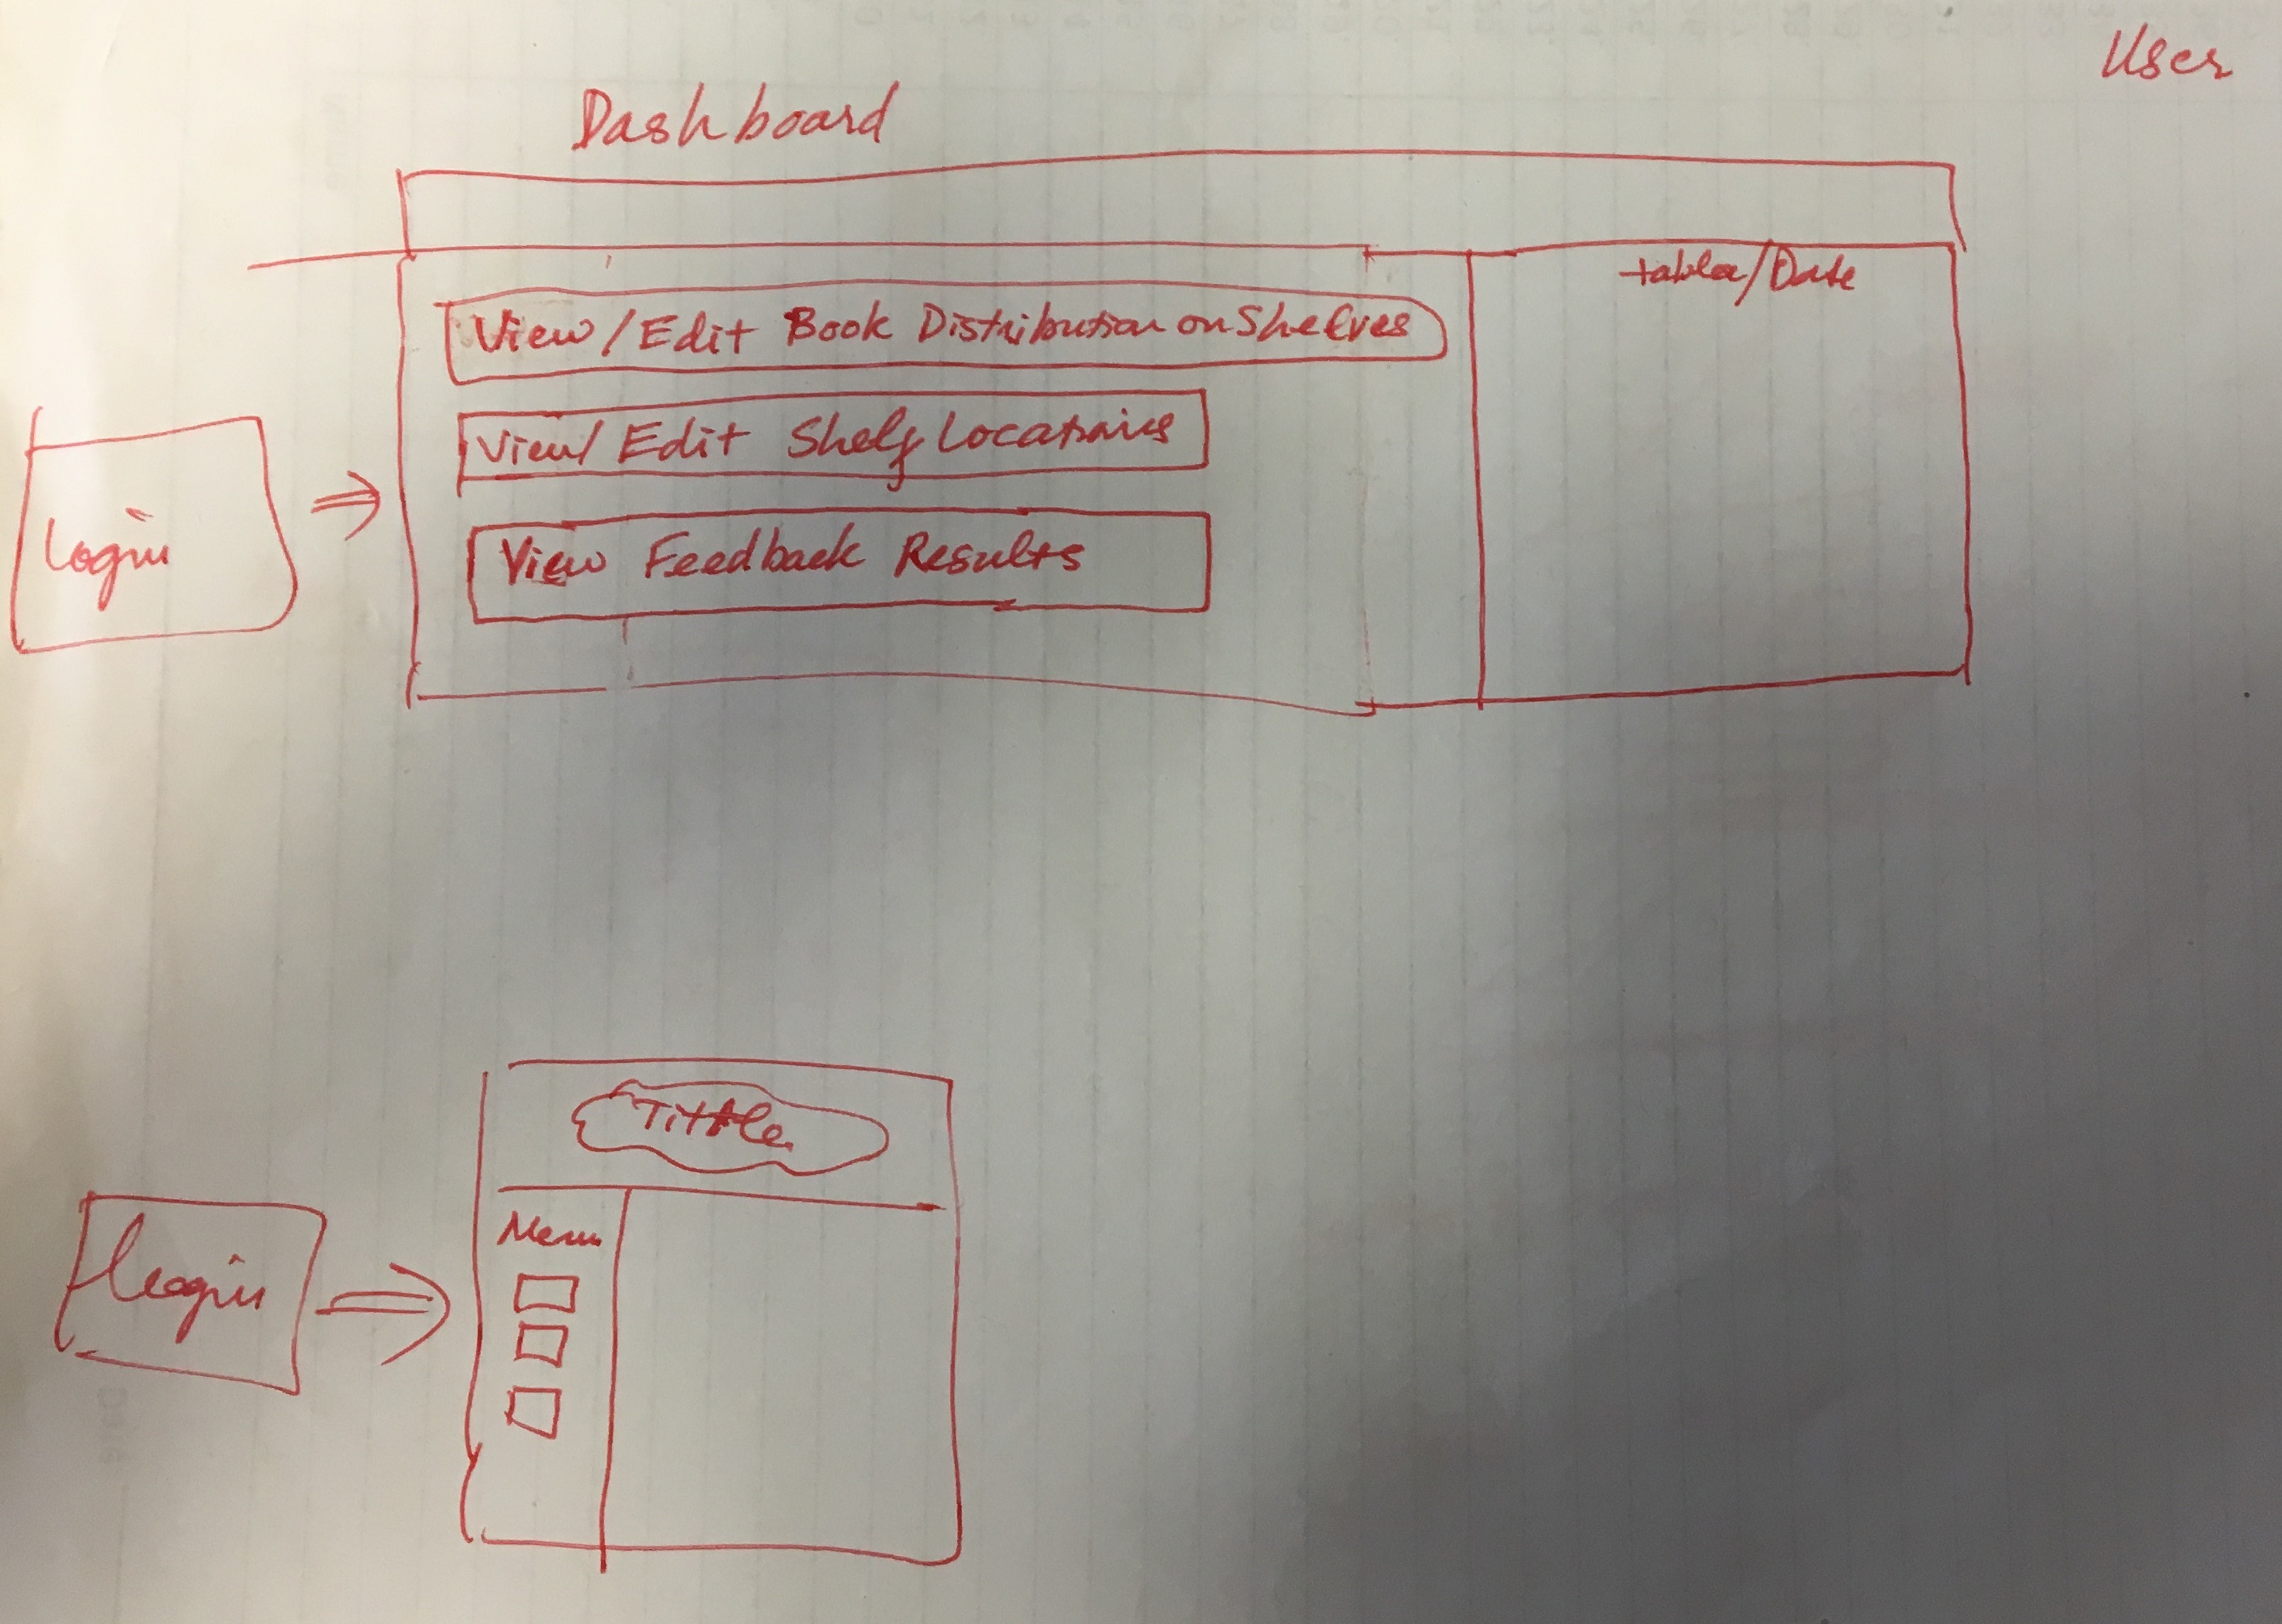 User
Dashboard
table/Date
View/Edit Book Distribution on Shelves
View/Edit Shelf Locations
View Feedback Results
Login
Tittle
Menu
Login